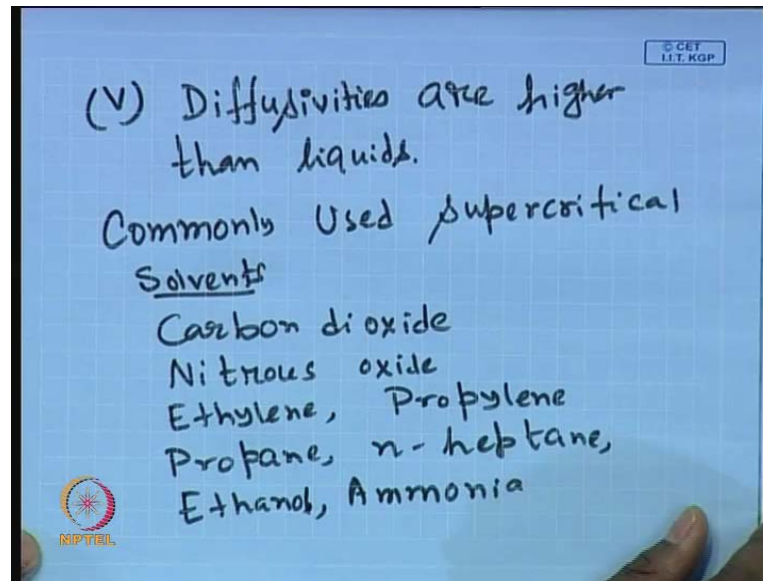 © CET
I.I.T. KGP
(V) Diffusivities are higher
than liquids.
Commonly Used supercritical
Solvents
Carbon dioxide
Nitrous oxide
Ethylene, Propylene
Propane, n-heptane,
Ethanol, Ammonia
NPTEL